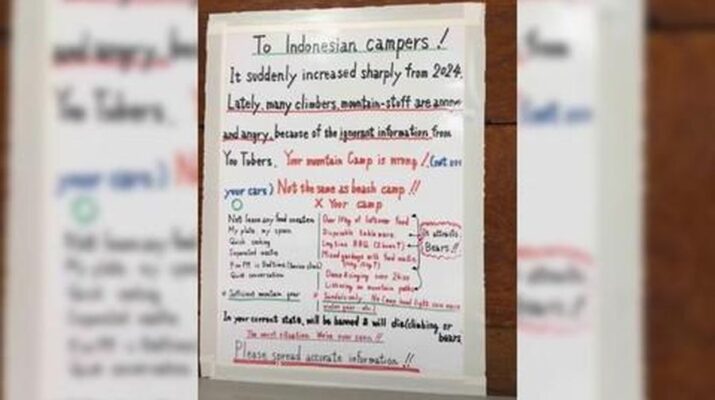 To Indonesian campers!
It suddenly increased sharply from 2024.
Lately, many climbers, mountain-stoff are
and angry, because of the ignorant information from
You Tubers. Your mountain Camp is wrong!
your cars) Not the same as beach camp!!
○ × Your camp
Not leave any food uneaten
My plate, my spoon
Quick cooking
Separated waste
Quiet conversation
※ Sufficient mountain gear
Over 10kg of leftover food
Disposable tableware
Long time BBQ
Mixed garbage with food waste
Dance & singing over
Listening on mountain paths
※ Sandals only. No
It attracts
Bears!!
In your current state, will be banned & will die(climbing or
bears
The worst situation We've ever seen!!
Please spread accurate information!!